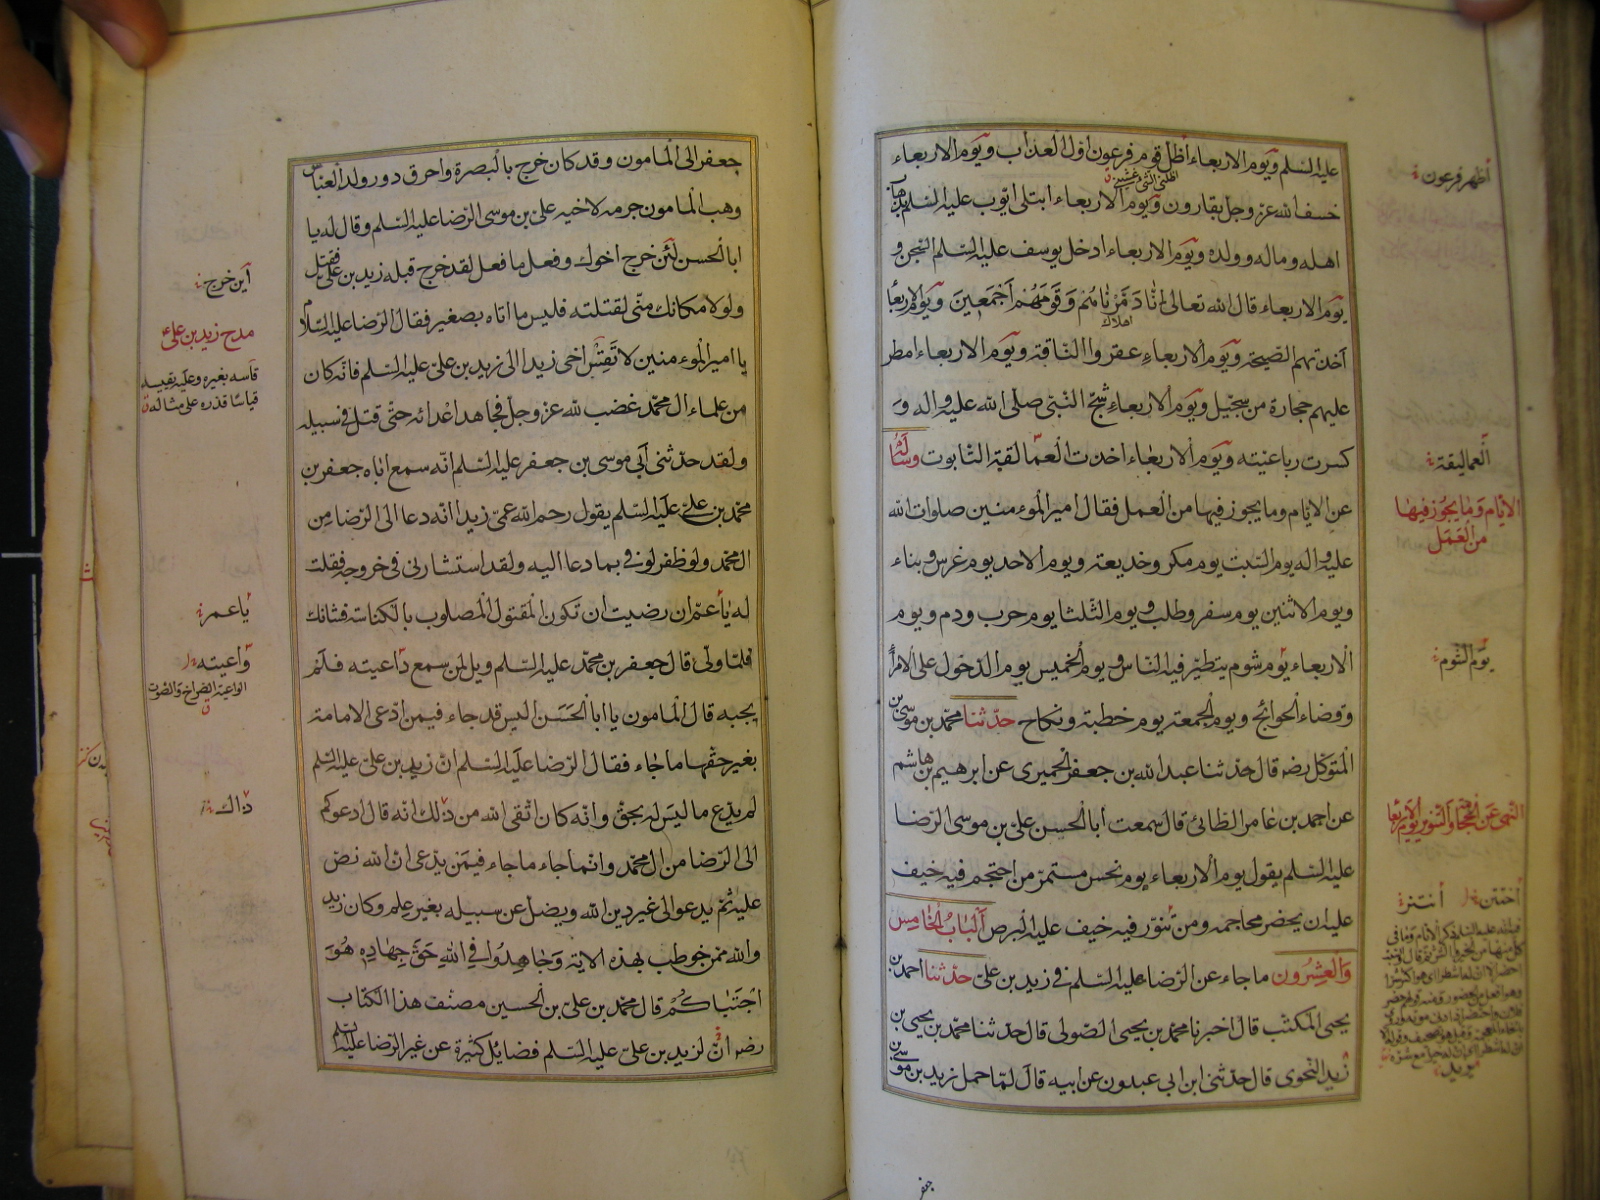 عليه السّلم ويوم الاربعاء أظلّ قوم فرعون اوّل العذاب ويوم الاربعاء
خسف الله عز وجل بقارون ويوم الاربعاء ابتلى ايّوب عليه السّلم بذهاب
اهله وماله وولده ويوم الاربعاء ادخل يوسف عليه السّلم السّجن و
يوم الاربعاء قال الله تعالى انّا دَمَّرْنَاهُم وَقَوْمَهُم أَجْمَعِينَ ويوم الاربعاء
اهلاك
أخذتهم الصّيحة ويوم الاربعاء عقروا النّاقة ويوم الاربعاء امطر
عليهم حجارة من سجّيل ويوم الاربعاء شجّ النّبيّ صلى الله عليه واله و
كسرت رباعيته ويوم الاربعاء اخذت العمالقة التّابوت وسأله
عن الايّام وما يجوز فيها من العمل فقال امير الموءمنين صلوات الله
عليه واله يوم السّبت يوم مكر وخديعة ويوم الاحد يوم غرس وبناء
ويوم الاثنين يوم سفر وطلب ويوم الثّلثا يوم حرب ودم ويوم
الاربعاء يوم شوم يتطيّر فيه النّاس ويوم الخميس يوم الدّخول على الامرآء
وقضاء الحوائج ويوم الجمعة يوم خطبة ونكاح حدّثنا محمّد بن موسى بن
المتوكّل رضه قال حدّثنا عبد الله بن جعفر الحميرى عن ابرهيم بن هاشم
عن احمد بن عامر الطّائى قال سمعت أبا الحسن علىّ بن موسى الرّضا
عليه السّلم يقول يوم الاربعاء يوم نحس مستمرّ من احتجم فيه خيف
عليه ان يخضر محاجمه ومن تنوّر فيه خيف عليه البرص ألبابُ الخامِس
وَالعِشرُون ما جاء عن الرّضا عليه السّلم فى زيد بن علىّ حدّثنا احمد بن
يحيى المكتّب قال اخبرنا محمّد بن يحيى الصّولى قال حدّثنا محمّد بن يحيى بن
زيد النّحوى قال حدّثنى ابن ابى عبدون عن ابيه قال لمّا حمل زيد بن موسى بن
جعفر
أظهر فرعون
العماليقة
الايّام وَما يجُوز فيها
من العَمَل
يوم الشّوم
جعفر الى المامون وقد كان خرج بالبصرة واحرق دور ولد العبّاس
وهب المامون جرمه لاخيه علىّ بن موسى الرّضا عليه السّلم وقال له يا
ابا الحسن لئن خرج اخوك وفعل ما فعل لقد خرج قبله زيد بن علىّ فقتل
ولولا مكانك منّى لقتلته فليس ما اتاه بصغير فقال الرّضا عليه السّلام
يا امير الموءمنين لا تَقِسْ أخى زيدا الى زيد بن علىّ عليه السّلم فانّه كان
من علماء ال محمّد غضب لله عز وجل فجاهد اعدائه حتّى قتل فى سبيله
ولقد حدّثنى أبى موسى بن جعفر عليه السّلم انّه سمع اباه جعفر بن
محمّد بن علىّ عليه السّلم يقول رحم الله عمّى زيدا انّه دعا الى الرّضا مِن
ال محمّد ولو ظفر لوفى بما دعا اليه ولقد استشارنى فى خروجه فقلت
له يا عمّ ان رضيت ان تكون المقتول المصلوب بالكناسة فشانك
فلمّا ولّى قال جعفر بن محمّد عليه السّلم ويل لمن سمع داعيته فلم
يجبه قال المامون يا ابا الحَسَن اليس قد جاء فيمن ادّعى الامامة
بغير حقّها ما جاء فقال الرّضا عليه السّلم انّ زيد بن علىّ عليه السّلم
لم يدّع ما ليس له بحقّ وانّه كان اتّقى الله من ذلك انّه قال ادعوكم
الى الرّضا من ال محمّد وانّما جاء ما جاء فيمَن يدّعى انّ الله نصّ
عليه ثمّ يدعو الى غير دين الله ويضلّ عن سبيله بغير علم وكان زيد
والله ممّن خوطب بهذه الاية وَجَاهِدُوا فِي اللهِ حَقَّ جِهَادِهِ هُوَ
اجْتَبَاكُمْ قال محمّد بن علىّ بن الحسين مصنّف هذا الكتاب
رضه انّ لزيد بن علىّ عليه السّلم فضايل كثيرة عن غير الرّضا عليه السّلم
أين خرج
مدح زيد بن علىّ
قاسه بغيره وعليه يقيسه
قياسًا قدره على مثاله
يا عمّ
واعيته
الواعية الصّراخ والصّوت
ذاك